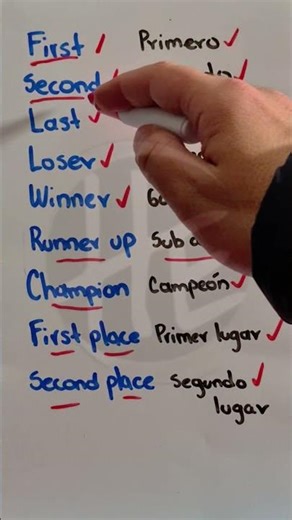 First Primero
Second
Last
Loser
Winner
Runner up Sub
Champion Campeón
First place Primer lugar
Second place segundo
lugar